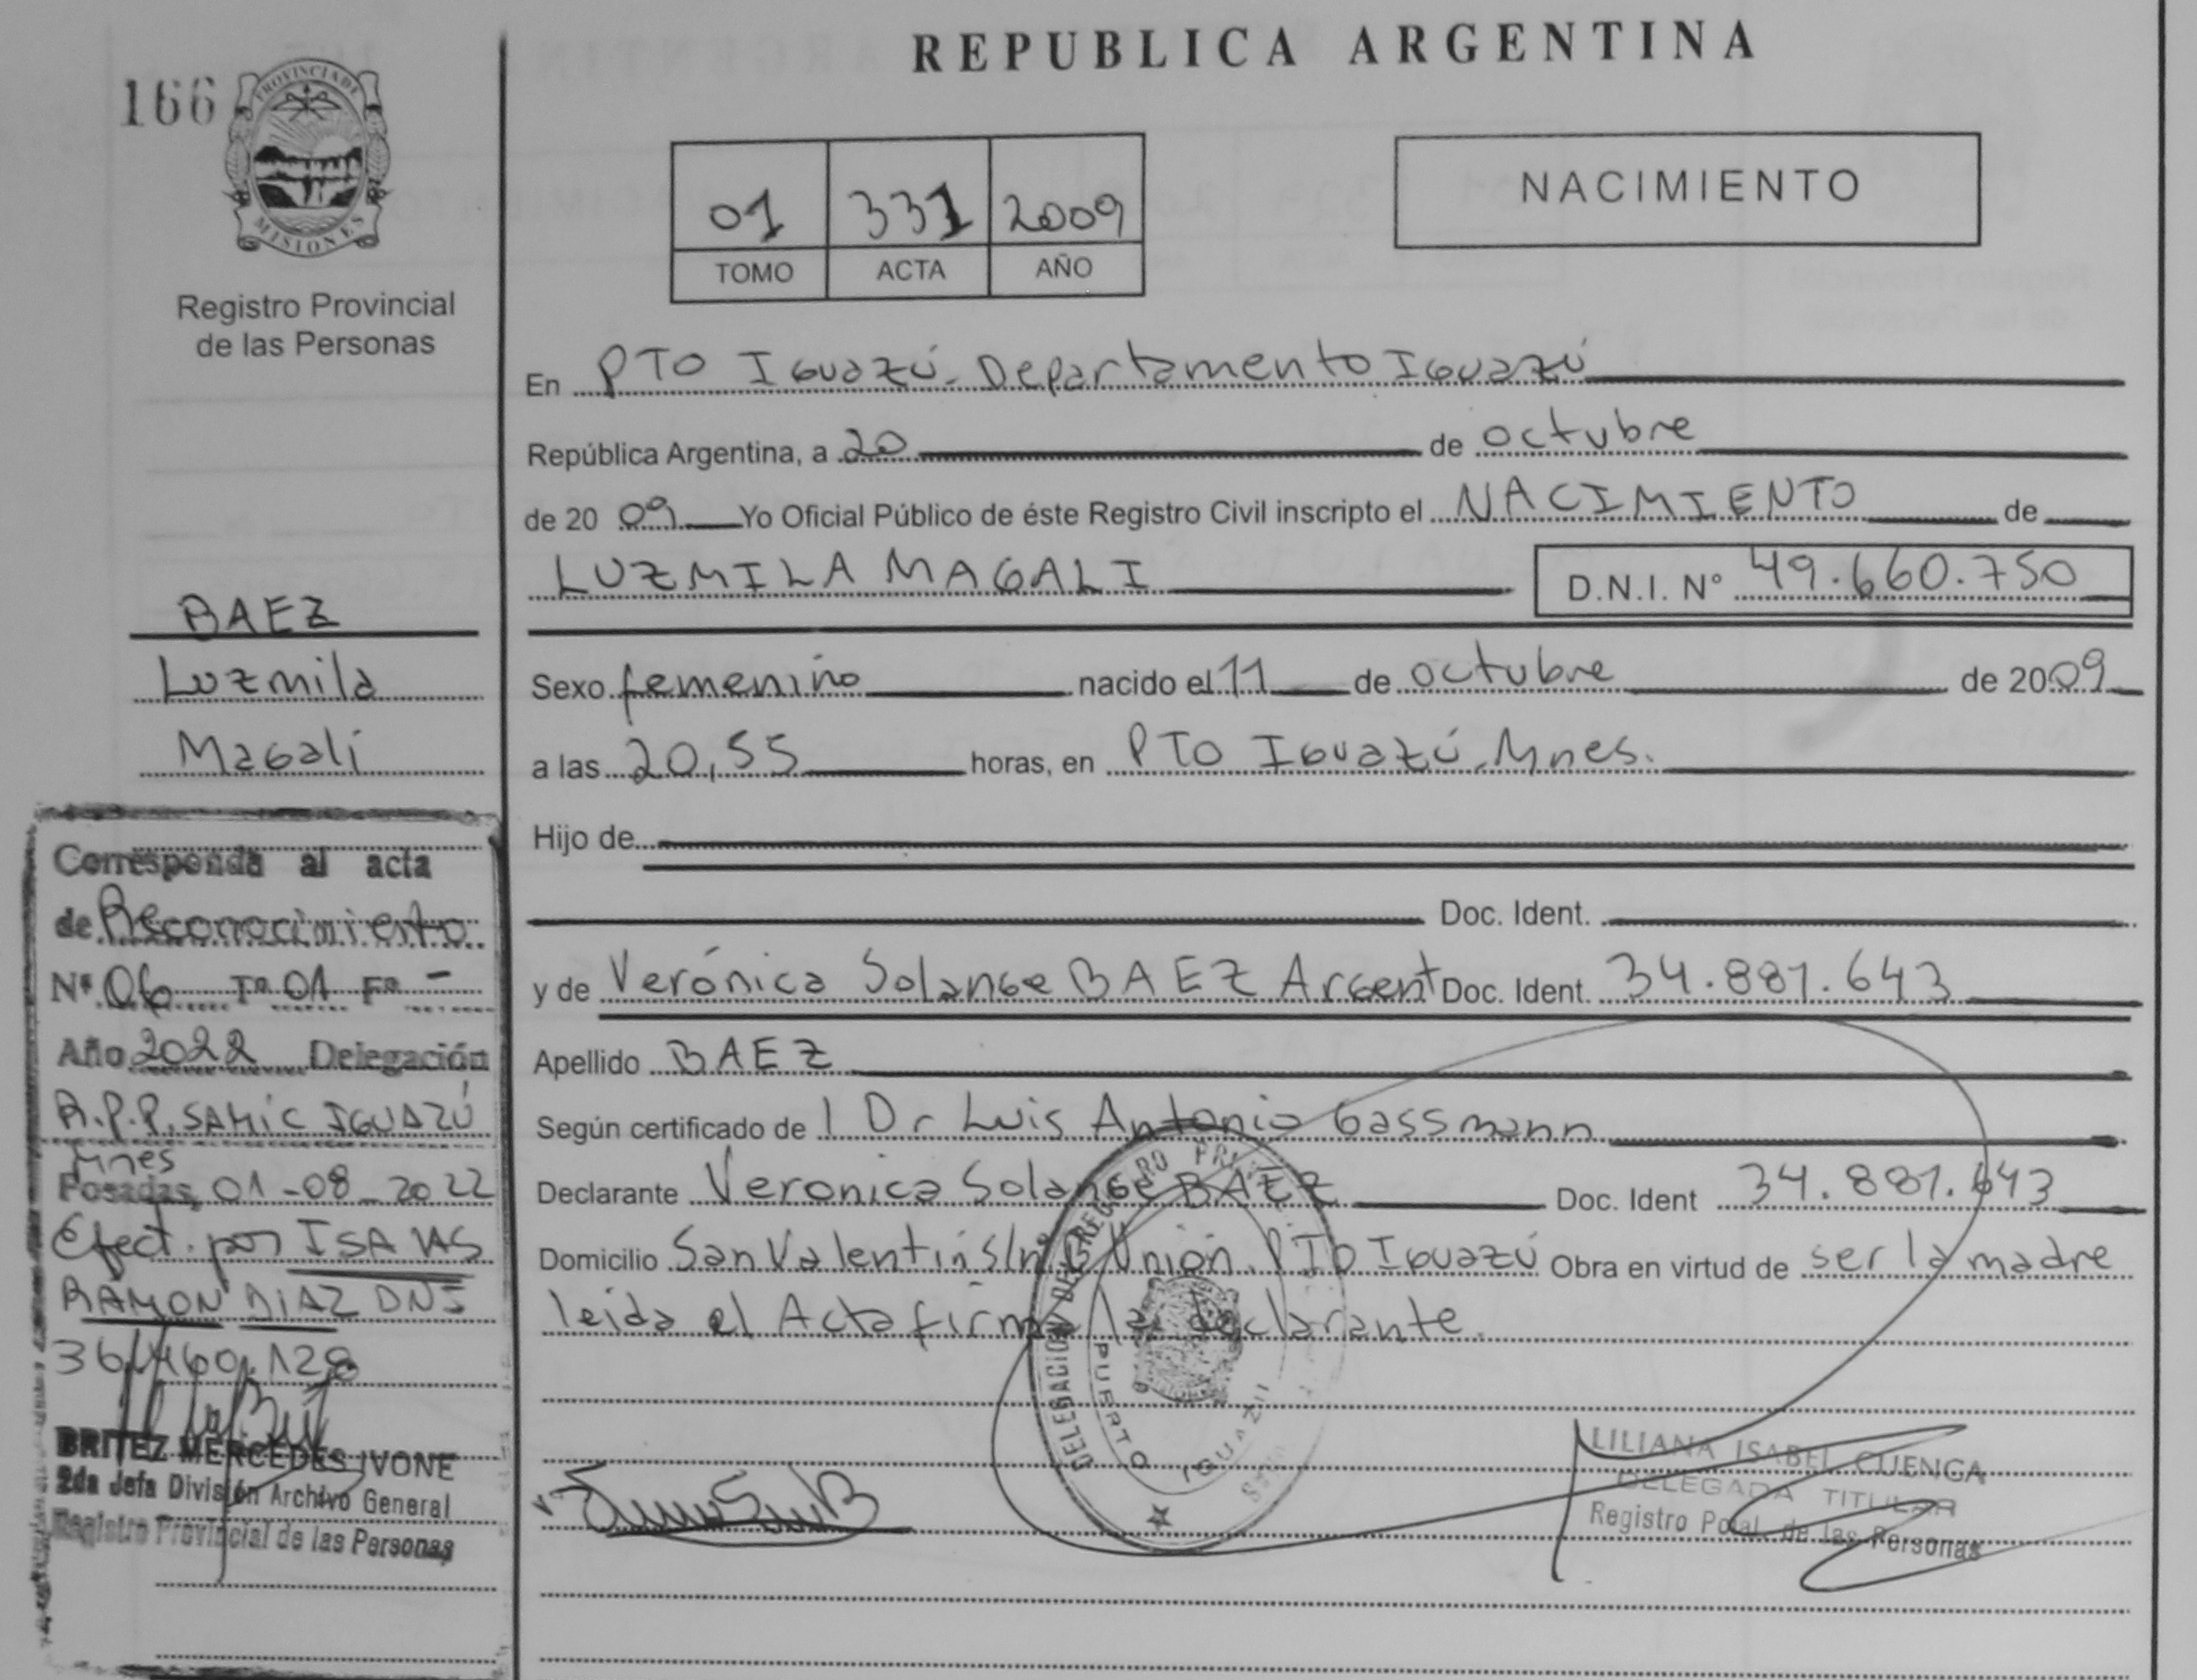 REPUBLICA ARGENTINA
166
PROVINCIA DE
MISIONES
Registro Provincial
de las Personas
01 331 2009
TOMO ACTA AÑO
NACIMIENTO
En PTO Iguazú. Departamento Iguazú
República Argentina, a 20 de octubre
de 2009 Yo Oficial Público de éste Registro Civil inscripto el NACIMIENTO de
LUZMILA MAGALI D.N.I. N° 49.660.750
Sexo femenino nacido el 11 de octubre de 2009
a las 20,55 horas, en PTO Iguazú. Mnes.
Hijo de
Doc. Ident.
y de Verónica Solange BAEZ Argent Doc. Ident. 34.881.643
Apellido BAEZ
Según certificado de l Dr Luis Antonio Gassmann
Declarante Veronica Solange BAEZ Doc. Ident 34.881.643
Domicilio San Valentin S/nº B Unión. PTO Iguazú Obra en virtud de ser la madre
leida el Acta firma la declarante.
BAEZ
Luzmila
Magali
Corresponda al acta
de Reconocimiento
Nº 06 Tº 01 Fº -
Año 2022 Delegación
R.P.P. SAMIC IGUAZÚ
Mnes
Posadas, 01-08-2022
Efect. por ISAIAS
RAMON DIAZ DNI
36.460.128
BRITEZ MERCEDES IVONE
2da Jefa División Archivo General
Registro Provincial de las Personas
DELEGACION DEL REGISTRO
PUERTO IGUAZU
LILIANA ISABEL CUENCA
DELEGADA TITULAR
Registro Pcial. de las Personas